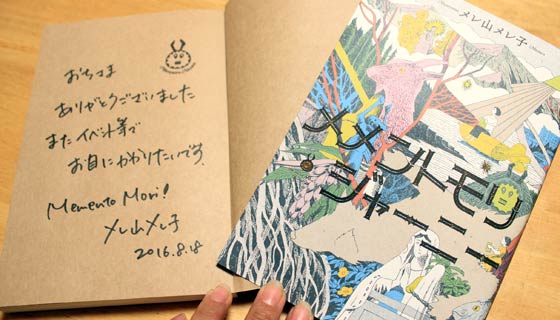 おちさま
ありがとうございました
また イベント等で
お目にかかりたいです。
Memento Mori!
メレ山メレ子
2016.8.18
メレ山メレ子
メメントモリ
ジャーニー